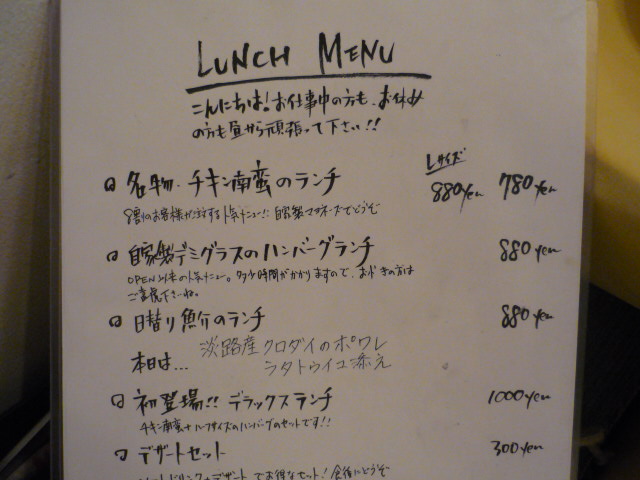 LUNCH MENU
こんにちは!お仕事中の方も、お休み
の方も昼から頑張って下さい!!
Lサイズ
名物・チキン南蛮のランチ 880yen 780yen
8割のお客様が注文する人気メニュー!! 自家製マヨネーズでどうぞ
自家製デミグラスのハンバーグランチ 880yen
OPEN以来の人気メニュー。多少時間がかかりますので、お急ぎの方は
ご容赦下さいね。
日替り魚介のランチ 880yen
本日は... 淡路産クロダイのポワレ
ラタトゥイユ添え
初登場!! デラックスランチ 1000yen
チキン南蛮+ハーフサイズのハンバーグのセットです!!
デザートセット 300yen
ドリンク+デザートでお得なセット!食後にどうぞ